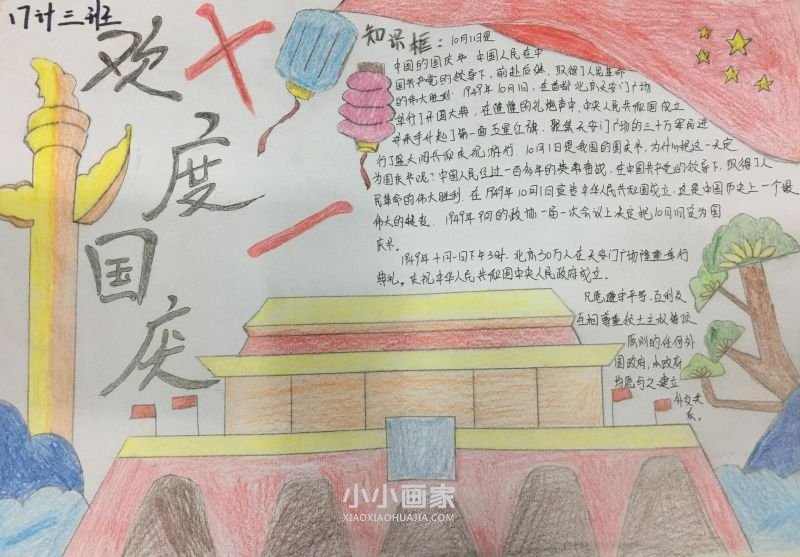 17计三班
欢度国庆
十一
知识框：10月1日是
中国的国庆节 中国人民在中
国共产党的领导下，前赴后继，取得了人民革命
的伟大胜利。1949年10月1日，在首都北京天安门广场
举行了开国大典，在隆隆的礼炮声中，中央人民共和国成立
并亲手升起了第一面五星红旗。聚集天安门广场的三十万军民进
行了盛大阅兵和庆祝游行。10月1日是我国的国庆节，为什么把这一天定
为国庆节呢？中国人民经过一百多年的英勇奋战，在中国共产党的领导下，取得了人
民革命的伟大胜利。在1949年10月1日宣告中华人民共和国成立，这是中国历史上一个最
伟大的转变。1949年9月的政协一届一次会议上决定把10月1日定为国
庆节。
1949年十月一日下午3时，北京30万人在天安门广场隆重举行
典礼。庆祝中华人民共和国中央人民政府成立。
凡愿遵守平等、互利及
互相尊重领土主权等项
原则的任何外
国政府，本政府
均愿与之建立
外交关
系。
小小画家
XIAOXIAOHUAJIA.COM